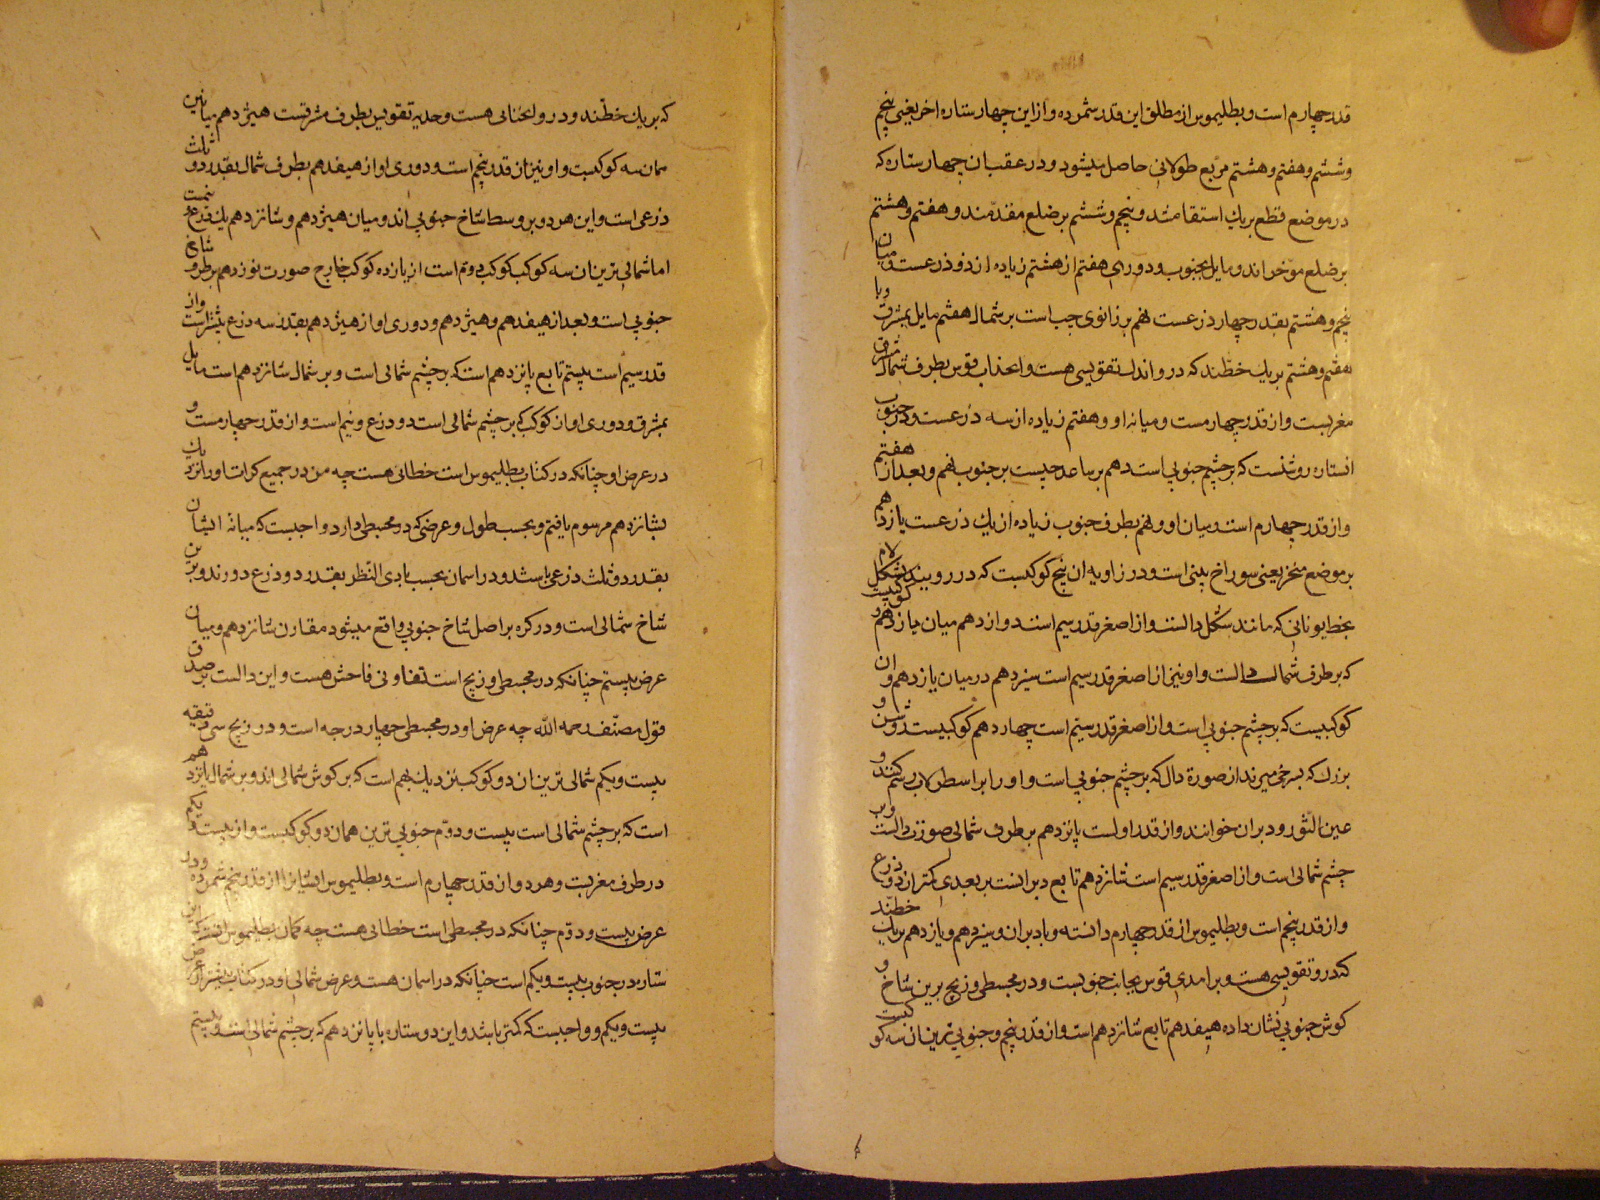 قدر چهارم است و بطلیموس از مطلق این قدر شمرده و از این چهار ستاره اخر یعنی پنجم
و ششم و هفتم و هشتم مربع طولانی حاصل میشود و در عقب ان چهار ستاره که
در موضع قطع بر یك استقامتند و پنجم و ششم بر ضلع مقدمند و هفتم و هشتم
بر ضلع موخر اند و مایل بجنوب و دوری هفتم از هشتم زیاده از دو ذرعست و میان
پنجم و هشتم بقدر چهار ذرعست نهم بر زانوی چپ است بر شمال هفتم مایل بمشرق و با
هفتم و هشتم بر یك خطند که در و اندك تقویسی هست و انحذاب قوس بطرف شمال
مغربست و از قدر چهارمست و میانه او و هفتم زیاده از سه ذرعست و در جنوب
انستاره روشنست که بر چشم جنوبی است دهم بر ساعد چپست بر جنوب نهم و بعد از هفتم
و از قدر چهارم است و میان او و نهم بطرف جنوب زیاده از یك ذرعست یازدهم
بر موضع منخر یعنی سوراخ بینی است و در زاویه ان پنج کوکبست که در رو بینند بشکل لام
بخط یونانی که مانند شکل دالست و از اصغر قدر سیم است دوازدهم میان یازدهم و کوکبیست
که بر طرف شمال دالست و او نیز از اصغر قدر سیم است سیزدهم در میان یازدهم و ان
کوکبیست که بر چشم جنوبی است و از اصغر قدر سیم است چهاردهم کوکبیست روشن و
بزرك که بسرخی میزند از صورة دال که بر چشم جنوبی است و او را بر اسطرلاب رسم کنند و
عین الثور و دبران خوانند و از قدر اولست پانزدهم بر طرف شمالی صورت دالست و بر
چشم شمالی است و از اصغر قدر سیم است شانزدهم تابع دبرانست بر بعدی کمتر از دو ذرع
و از قدر پنجم است و بطلیموس از قدر چهارم دانسته و با دبران و سیزدهم و یازدهم بر یك خطند
که در و تقویسی هست و برامدی قوس بجانب جنوبست و در مجسطی و زیج بر بن شاخ و
کوش جنوبی نشان داده هیفدهم تابع شانزدهم است و از قدر پنجم و جنوبی ترین ان سه کوکبست
که بر یك خطند و در و انحنائی هست و حدبه تقویس بطرف مشرقست هیژدهم میانین
همان سه کوکبست و او نیز از قدر پنجم است و دوری او از هیفدهم بطرف شمال بقدر دو ثلث
ذرعی است و این هر دو بر وسط شاخ جنوبی اند و میان هیژدهم و شانزدهم یك ذرع و نیمست
اما شمالی ترین ان سه کوکب کوکب دوم است از یازده کوکب خارج صورت نوزدهم بر طرف شاخ
جنوبی است و بعد از هیفدهم و هیژدهم و دوری او از هیژدهم بقدر سه ذرع بیشتر است و از
قدر سیم است بیستم تابع پانزدهم است که بر چشم شمالی است و بر شمال شانزدهم است مایل
بمشرق و دوری او از کوکب که بر چشم شمالی است دو ذرع و نیم است و از قدر چهارمست و
در عرض او چنانکه در کتاب بطلیموس است خطائی هست چه من در جمیع کرات او را نزدیك
بشانزدهم مرسوم یافتم و بحسب طول و عرضی که در مجسطی دارد واجبست که میانهٔ ایشان
بقدر دو ثلث ذرعی باشد و در اسمان بحسب بادی النظر بقدر دو ذرع دورند و بر بن
شاخ شمالی است و در کره بر اصل شاخ جنوبی واقع میشود مقارن شانزدهم و میان
عرض بیستم چنانکه در مجسطی و زیج است تفاوتی فاحش هست و این دالست بر صدق
قول مصنف رحمه الله چه عرض او در مجسطی چهار درجه است و در زیج سی دقیقه
بیست و یکم شمالی ترین ان دو کوکب نزدیك بهم است که بر کوش شمالی اند و بر شمال پانزدهم
است که بر چشم شمالی است بیست و دوم جنوبی ترین همان دو کوکبست و از بیست و یکم
در طرف مغربست و هر دو از قدر چهارم است و بطلیموس ایشانرا از قدر پنجم شمرده و در
عرض بیست و دوم چنانکه در مجسطی است خطائی هست چه کمان بطلیموس انست که این
ستاره در جنوب بیست و یکم است چنانکه در اسمان هست و عرض شمالی او در کتاب بیشتر از عرض
بیست و یکم و واجبست که کمتر باشد و این دو ستاره با پانزدهم که بر چشم شمالی است و بیستم